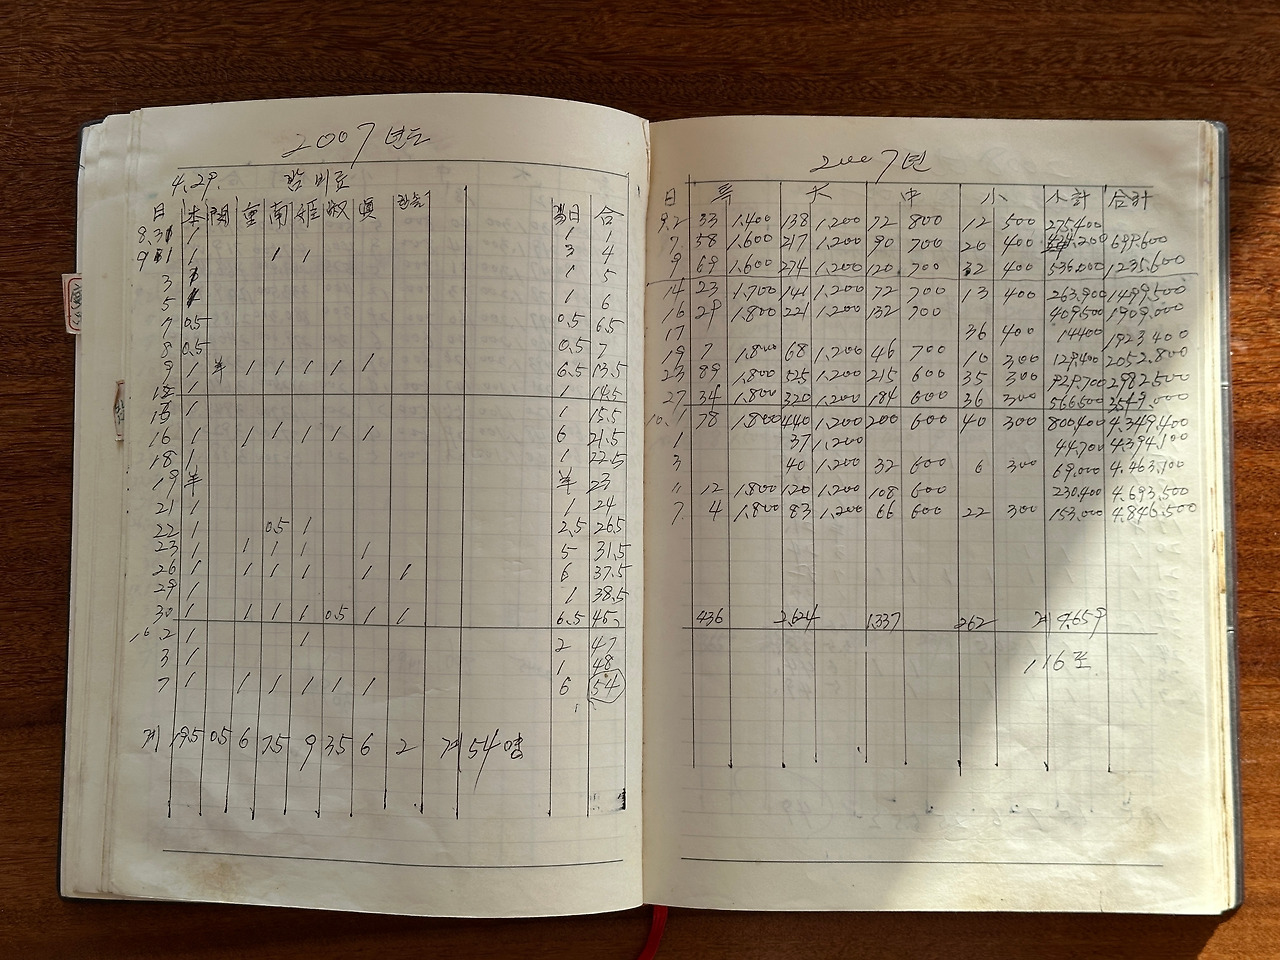 2007년도
4.29. 밤 비료
日 本 閑 重 南 姬 淑 嬪 當日 合
8.31 1 1 1
9.1 1 1 1 3 4
3 1 1 5
5 1 1 6
7 0.5 0.5 6.5
8 0.5 0.5 7
9 1 半 1 1 1 1 1 6.5 13.5
12 1 1 14.5
13 1 1 15.5
16 1 1 1 1 1 1 6 21.5
18 1 1 22.5
19 半 半 23
21 1 1 24
22 1 0.5 1 2.5 26.5
23 1 1 1 1 1 5 31.5
26 1 1 1 1 1 1 6 37.5
29 1 1 38.5
30 1 1 1 1 0.5 1 1 6.5 45
10.2 1 1 2 47
3 1 1 48
7 1 1 1 1 1 1 6 54
계 19.5 0.5 6 7.5 9 3.5 6 2 계 54명
2007년
日 특 大 中 小 小計 合計
9.2 33 1.400 138 1.200 72 800 12 500 275.400
7. 58 1.600 217 1.200 90 700 20 400 424.200 699.600
9 69 1.600 274 1.200 120 700 32 400 536.000 1235.600
14 23 1.700 141 1.200 72 700 13 400 263.900 1499.500
16 29 1.800 221 1.200 132 700 409.500 1909.000
17 36 400 14400 1923.400
19 7 1.800 68 1.200 46 700 10 300 129.400 2052.800
23 89 1.800 525 1.200 215 600 35 300 929.700 2982.500
27 34 1.800 320 1.200 184 600 36 300 566.500 3549.000
10.1 78 1.800 440 1.200 200 600 40 300 800.400 4.349.400
1 37 1.200 44.700 4.394.100
3 40 1.200 32 600 6 300 69.000 4.463.100
〃 12 1.800 120 1.200 108 600 230.400 4.693.500
7. 4 1.800 83 1.200 66 600 22 300 153.000 4.846.500
436 2.624 1.337 262 계 4.659
116포